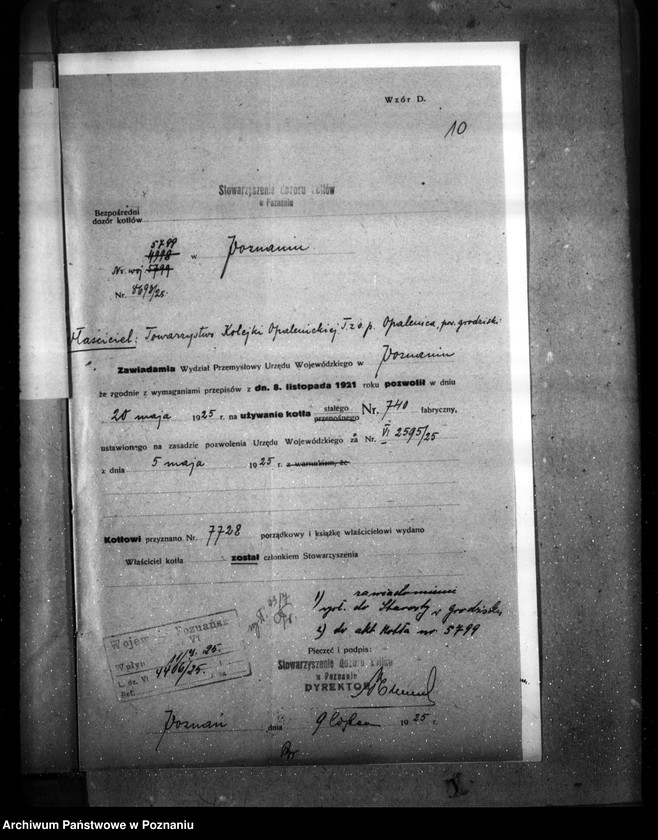 Wzór D.
10
Stowarzyszenie dozoru kotłów
w Poznaniu
Bezpośredni
dozór kotłów
5799
4998
w Poznaniu
Nr. woj 5799
Nr. 8698/25.
Właściciel: Towarzystwo Kolejki Opalenickiej T.z o. p. Opalenica, pow. grodzisk:
Zawiadamia Wydział Przemysłowy Urzędu Wojewódzkiego w Poznaniu
że zgodnie z wymaganiami przepisów z dn. 8. listopada 1921 roku pozwolił w dniu
20 maja 1925 r. na używanie kotła stałego przenośnego Nr. 740 fabryczny,
ustawionego na zasadzie pozwolenia Urzędu Wojewódzkiego za Nr. VI 2595/25
z dnia 5 maja 1925 r. z warunkiem, że
Kotłowi przyznano Nr. 7728 porządkowy i książkę właścicielowi wydano
Właściciel kotła został członkiem Stowarzyszenia
1) zawiadomienie
do Starosty w Grodzisku
2) do akt kotła nr 5799
Wojew Poznańsk
VI
Wpłyn 25.
L. dz. VI 4406/25.
Ref.
Pieczęć i podpis:
Stowarzyszenie dozoru kotłów
w Poznaniu
DYREKTOR
Poznań dnia 9 lipca 1925 r.
Archiwum Państwowe w Poznaniu